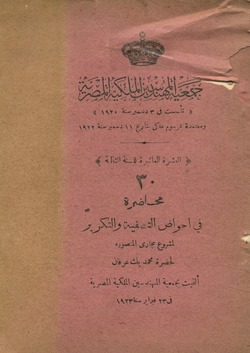 جمعية المهندسين الملكية المصرية
﴿ تأسست في ٣ ديسمبر سنة ١٩٢٠ ﴾
ومعتمدة بمرسوم ملكي بتاريخ ١١ ديسمبر سنة ١٩٢٢
﴿ النشرة العاشرة للسنة الثالثة ﴾
٣٠
محاضرة
في احواض التصفية والتكرير
لمشروع مجاري المنصورة
لحضرة محمد بك عرفان
ألقيت بجمعية المهندسين الملكية المصرية
في ٢٣ فبراير سنة ١٩٢٣